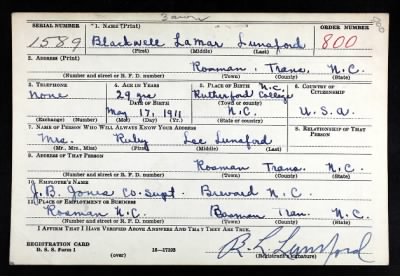 SERIAL NUMBER 1. NAME (Print) ORDER NUMBER
1589 Blackwell LaMar Lunsford 800
(First) (Middle) (Last)
2. ADDRESS (Print)
Rosman, Trans. N.C.
(Number and street or R. F. D. number) (Town) (County) (State)
3. TELEPHONE 4. AGE IN YEARS 5. PLACE OF BIRTH 6. COUNTRY OF CITIZENSHIP
None 29 yrs Rutherford College N.C.
DATE OF BIRTH
May 17, 1911 N.C. U.S.A.
(Exchange) (Number) (Mo.) (Day) (Yr.) (State or country)
7. NAME OF PERSON WHO WILL ALWAYS KNOW YOUR ADDRESS 8. RELATIONSHIP OF THAT PERSON
Mrs. Ruby Lee Lunsford
(Mr., Mrs., Miss) (First) (Middle) (Last)
9. ADDRESS OF THAT PERSON
Rosman Trans. N.C.
(Number and street or R. F. D. number) (Town) (County) (State)
10. EMPLOYER'S NAME
J.B. Jones Co. Supt. Brevard N.C.
11. PLACE OF EMPLOYMENT OR BUSINESS
Rosman N.C. Rosman Tran. N.C.
(Number and street or R. F. D. number) (Town) (County) (State)
I AFFIRM THAT I HAVE VERIFIED ABOVE ANSWERS AND THAT THEY ARE TRUE.
REGISTRATION CARD
D. S. S. Form 1 16—17105
(over) (Registrant's signature)
B. L. Lunsford